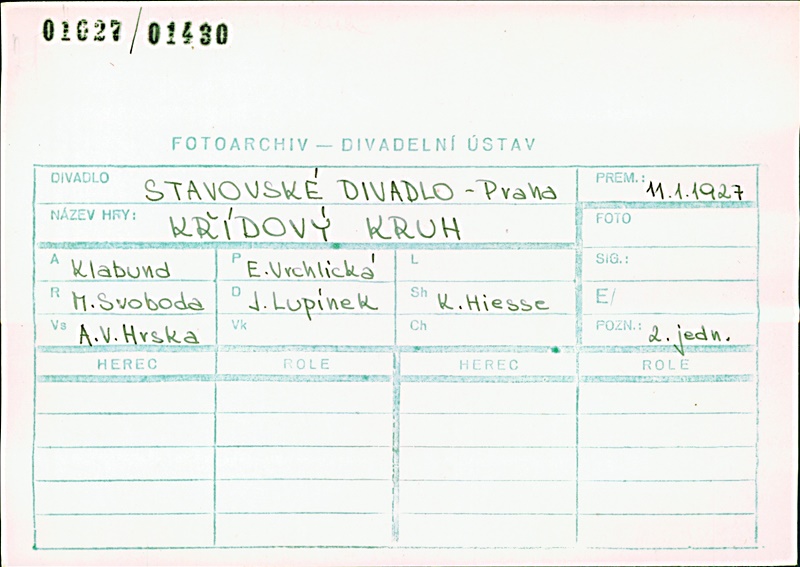 01627/01430
FOTOARCHIV — DIVADELNÍ ÚSTAV
DIVADLO STAVOVSKÉ DIVADLO - Praha PREM.: 11.1.1927
NÁZEV HRY: KŘÍDOVÝ KRUH FOTO
A Klabund P E. Vrchlická L SIG.:
R M. Svoboda D J. Lupínek Sh K. Hiesse E/
Vs A.V. Hrska Vk Ch POZN.: 2. jedn.
HEREC ROLE HEREC ROLE